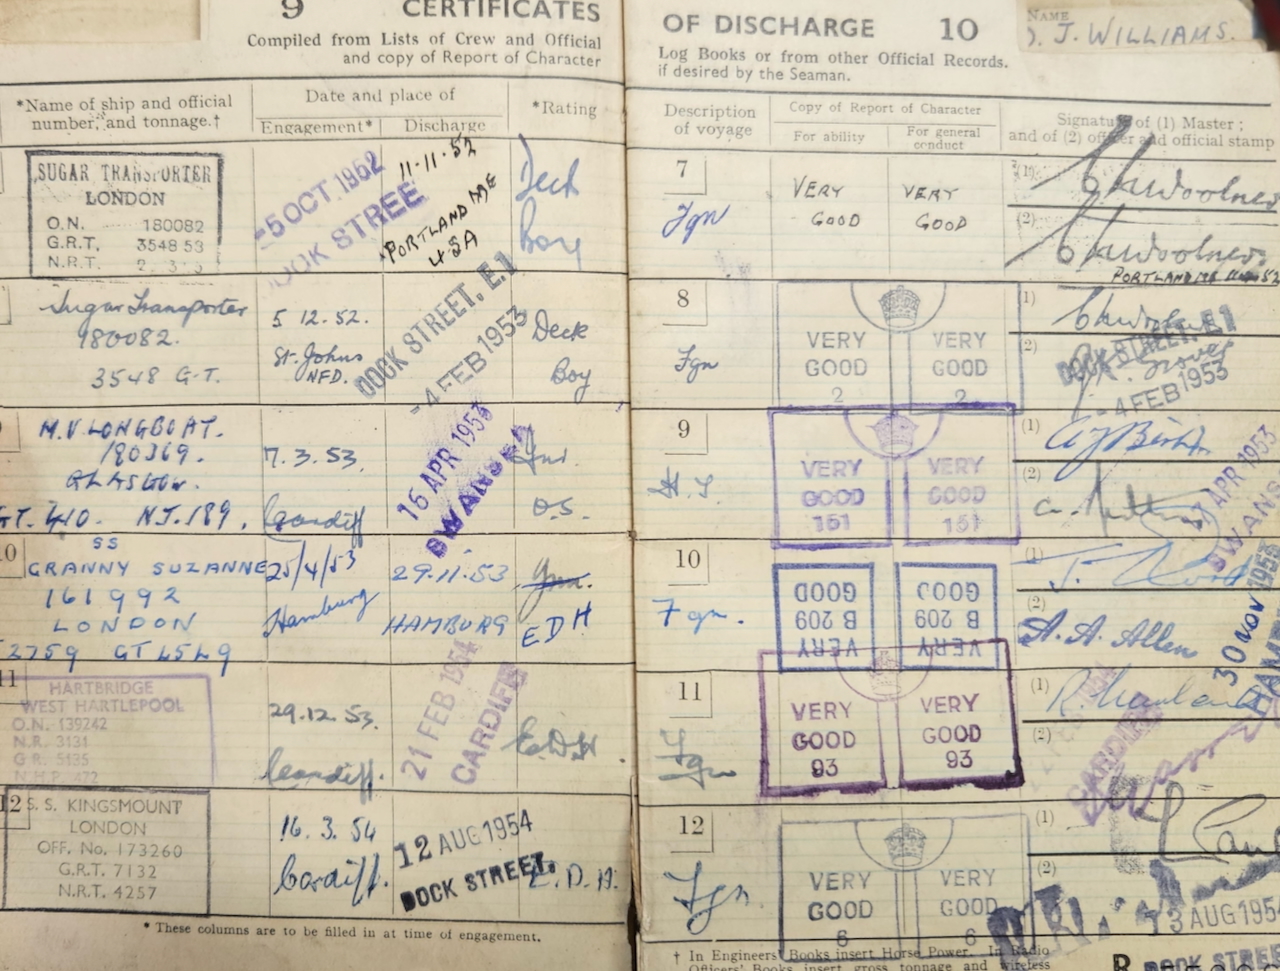 9 CERTIFICATES
Compiled from Lists of Crew and Official
and copy of Report of Character
*Name of ship and official
number, and tonnage.†
Date and place of
Engagement*
Discharge
*Rating
SUGAR TRANSPORTER
LONDON
O.N. 180082
G.R.T. 3548 53
N.R.T.
-5 OCT 1952
DOCK STREE
11-11-52
PORTLAND ME
USA
Deck
Boy
Sugar Transporter
180082.
3548 G.T.
5 12.52.
St. Johns
NFD.
DOCK STREET, E.1
-4 FEB 1953
Deck
Boy
M.V. LONGBOAT.
180369.
GLASGOW.
GT. 410. NT. 189.
7.3.53.
Cardiff
16 APR 1953
SWANSEA
O.S.
10
SS
GRANNY SUZANNE
161992
LONDON
2759 GT
25/4/53
Hamburg
29.11.53
HAMBURG
EDH
11
HARTBRIDGE
WEST HARTLEPOOL
O.N. 139242
N.R. 3131
G.R. 5135
N.H.P. 472
29.12.53.
Cardiff.
21 FEB 1954
CARDIFF
E.D.H.
12
S.S. KINGSMOUNT
LONDON
OFF. No. 173260
G.R.T. 7132
N.R.T. 4257
16.3.54
Cardiff.
12 AUG 1954
DOCK STREET.
E.D.H.
* These columns are to be filled in at time of engagement.
OF DISCHARGE 10
NAME
D. J. WILLIAMS.
Log Books or from other Official Records.
if desired by the Seaman.
Description
of voyage
Copy of Report of Character
For ability
For general
conduct
Signature of (1) Master;
and of (2) officer and official stamp
7
Fgn
VERY
GOOD
VERY
GOOD
(1)
(2)
PORTLAND ME
8
Fgn
VERY
GOOD
2
VERY
GOOD
2
1)
2)
DOCK STREET, E1
-4 FEB 1953
9
H.T.
VERY
GOOD
151
VERY
GOOD
151
(1)
(2)
APR 1953
SWANS
10
Fgn.
VERY
B 209
GOOD
VERY
B 209
GOOD
(1)
(2)
A. A. Allen
30 NOV 1953
HAM
11
Fgn
VERY
GOOD
93
VERY
GOOD
93
(1)
(2)
CARDIFF
12
Fgn
VERY
GOOD
6
VERY
GOOD
6
(1)
(2)
13 AUG 1954
DOCK STREE
† In Engineers' Books insert Horse Power. In Radio
Officers' Books insert gross tonnage and wireless